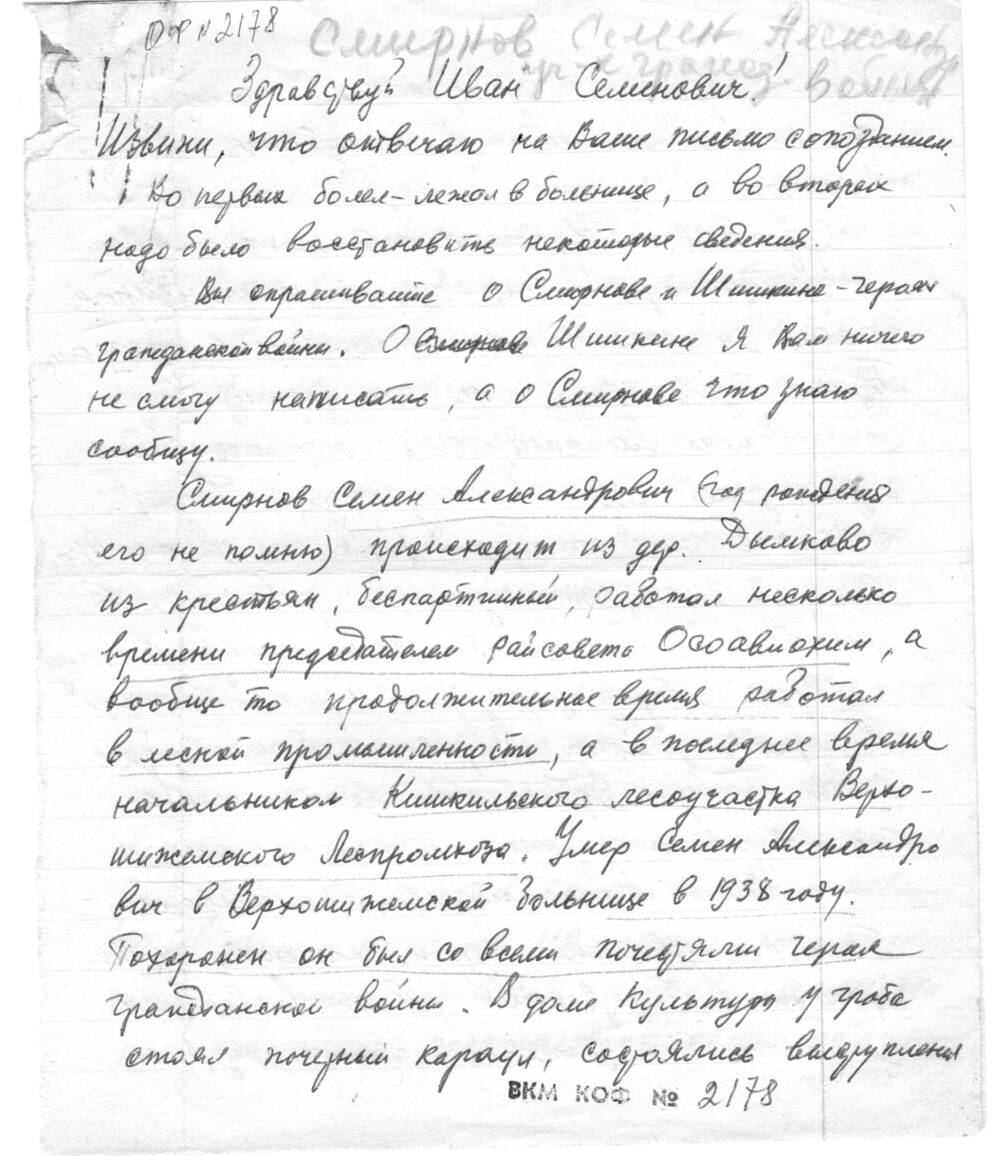 ОФ № 2178
Смирнов Семен Александр
уч-к гражд. войны
Здравствуй Иван Семенович!
Извини, что отвечаю на Ваше письмо с опозданием.
Во первых болел - лежал в больнице, а во вторых
надо было восстановить некоторые сведения.
Вы спрашиваете о Смирнове и Шишкине - героях
гражданской войны. О Смирнове Шишкине я Вам ничего
не смогу написать, а о Смирнове что знаю
сообщу.
Смирнов Семен Александрович (год рождения
его не помню) происходит из дер. Дымково
из крестьян, беспартийный, работал несколько
времени председателем райсовета Осоавиахим, а
вообще то продолжительное время работал
в лесной промышленности, а в последнее время
начальником Кишкильского лесоучастка Верхо-
шижемского Леспромхоза. Умер Семен Александро
вич в Верхошижемской больнице в 1938 году.
Похоронен он был со всеми почестями героя
гражданской войны. В доме культуры у гроба
стоял почетный караул, состоялись выступления
ВКМ КОФ № 2178